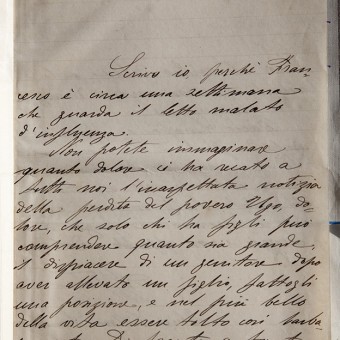 Scrivo io, perché Fran-
cesco è circa una settimana
che guarda il letto malato
d'influenza.
Non potete immaginare
quanto dolore ci ha recato a
tutti noi l'inaspettata notizia
della perdita del povero Ugo, do-
lore, che solo chi ha figli può
comprendere quanto sia grande
il dispiacere di un genitore dopo
aver allevato un figlio, fattogli
una posizione, e nel più bello
della vita essere tolto così barba-